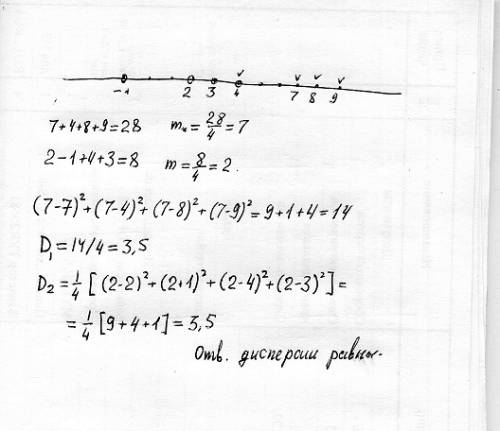 -1 2 3 4 7 8 9
7+4+8+9=28 m₁=28/4=7
2-1+4+3=8 m=8/4=2.
(7-7)²+(7-4)²+(7-8)²+(7-9)²=9+1+4=14
D₁=14/4=3,5
D₂=1/4[(2-2)²+(2+1)²+(2-4)²+(2-3)²]=
=1/4[9+4+1]=3,5
Отв. дисперсии равны.